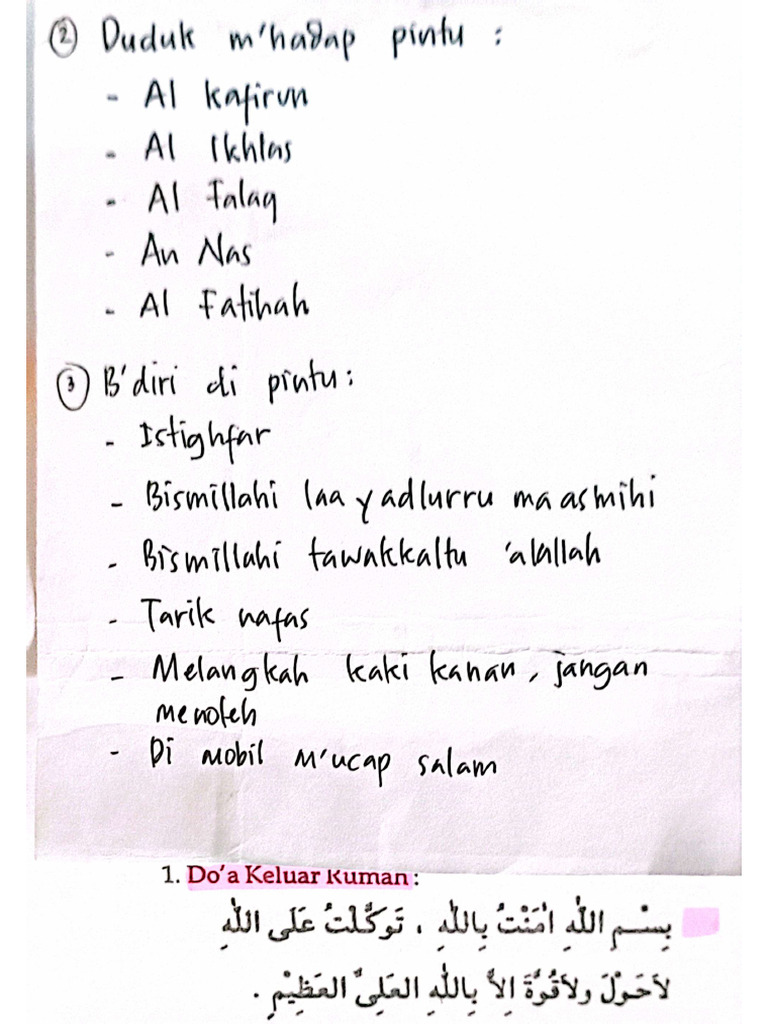 ② Duduk m'hadap pintu :
- Al Kafirun
- Al Ikhlas
- Al Falaq
- An Nas
- Al Fatihah
③ B'diri di pintu :
- Istighfar
- Bismillahi laa yadlurru maasmihi
- Bismillahi tawakkaltu 'alallah
- Tarik nafas
- Melangkah kaki kanan, jangan
menoleh
- Di mobil m'ucap salam
1. Do'a Keluar Rumah :
بِسْمِ اللهِ اٰمَنْتُ بِاللهِ ، تَوَكَّلْتُ عَلَى اللهِ
لاَحَوْلَ وَلاَقُوَّةَ اِلاَّ بِاللهِ الْعَلِىِّ الْعَظِيْمِ .